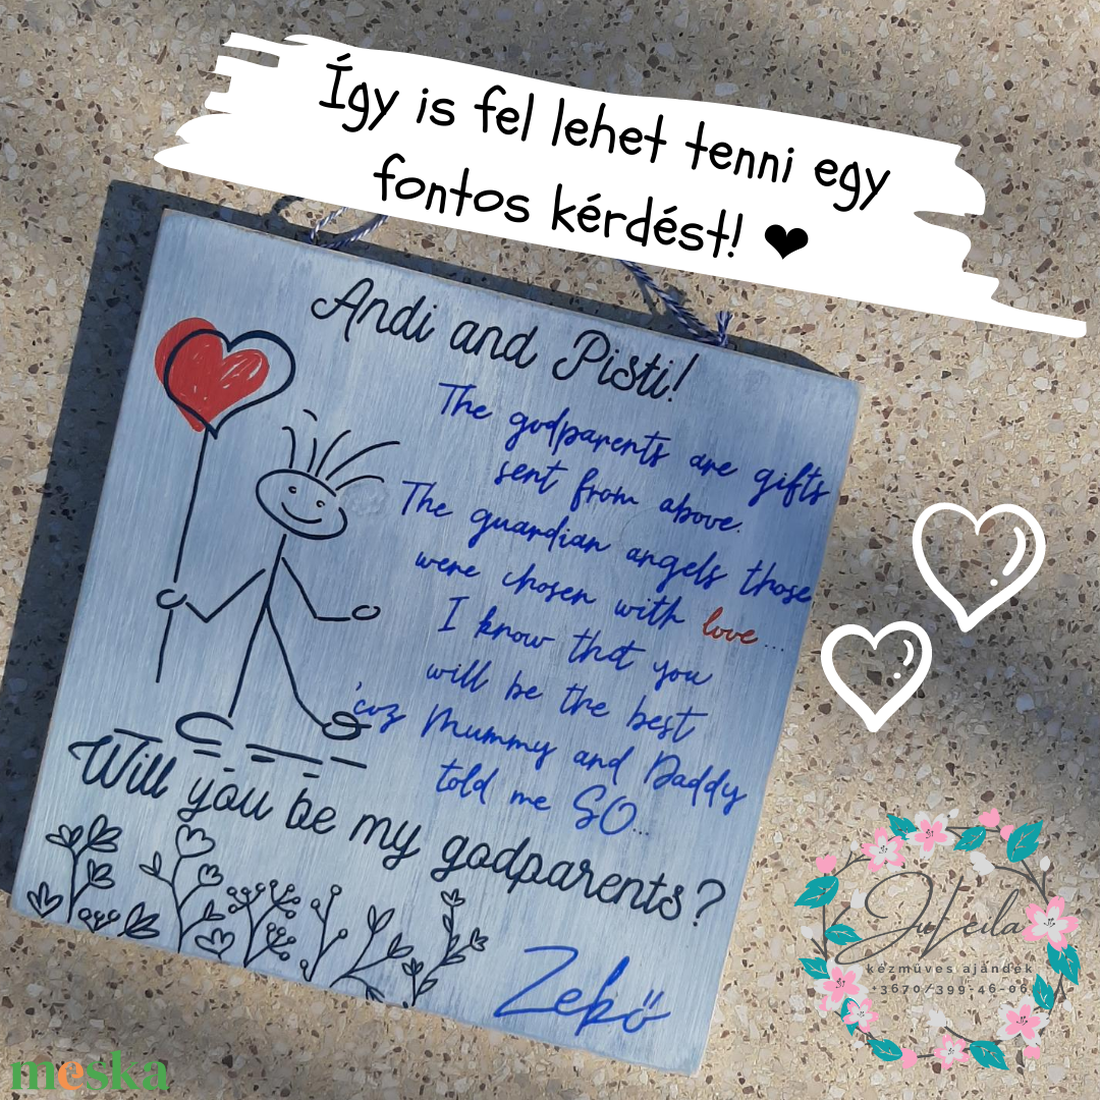 Így is fel lehet tenni egy
fontos kérdést! ❤
Andi and Pisti!
The godparents are gifts
sent from above.
The guardian angels those
were chosen with love...
I know that you
will be the best
'coz Mummy and Daddy
told me SO...
Will you be my godparents?
Zekő
JuVeila
kézműves ajándék
+3670/399-46-06
meska